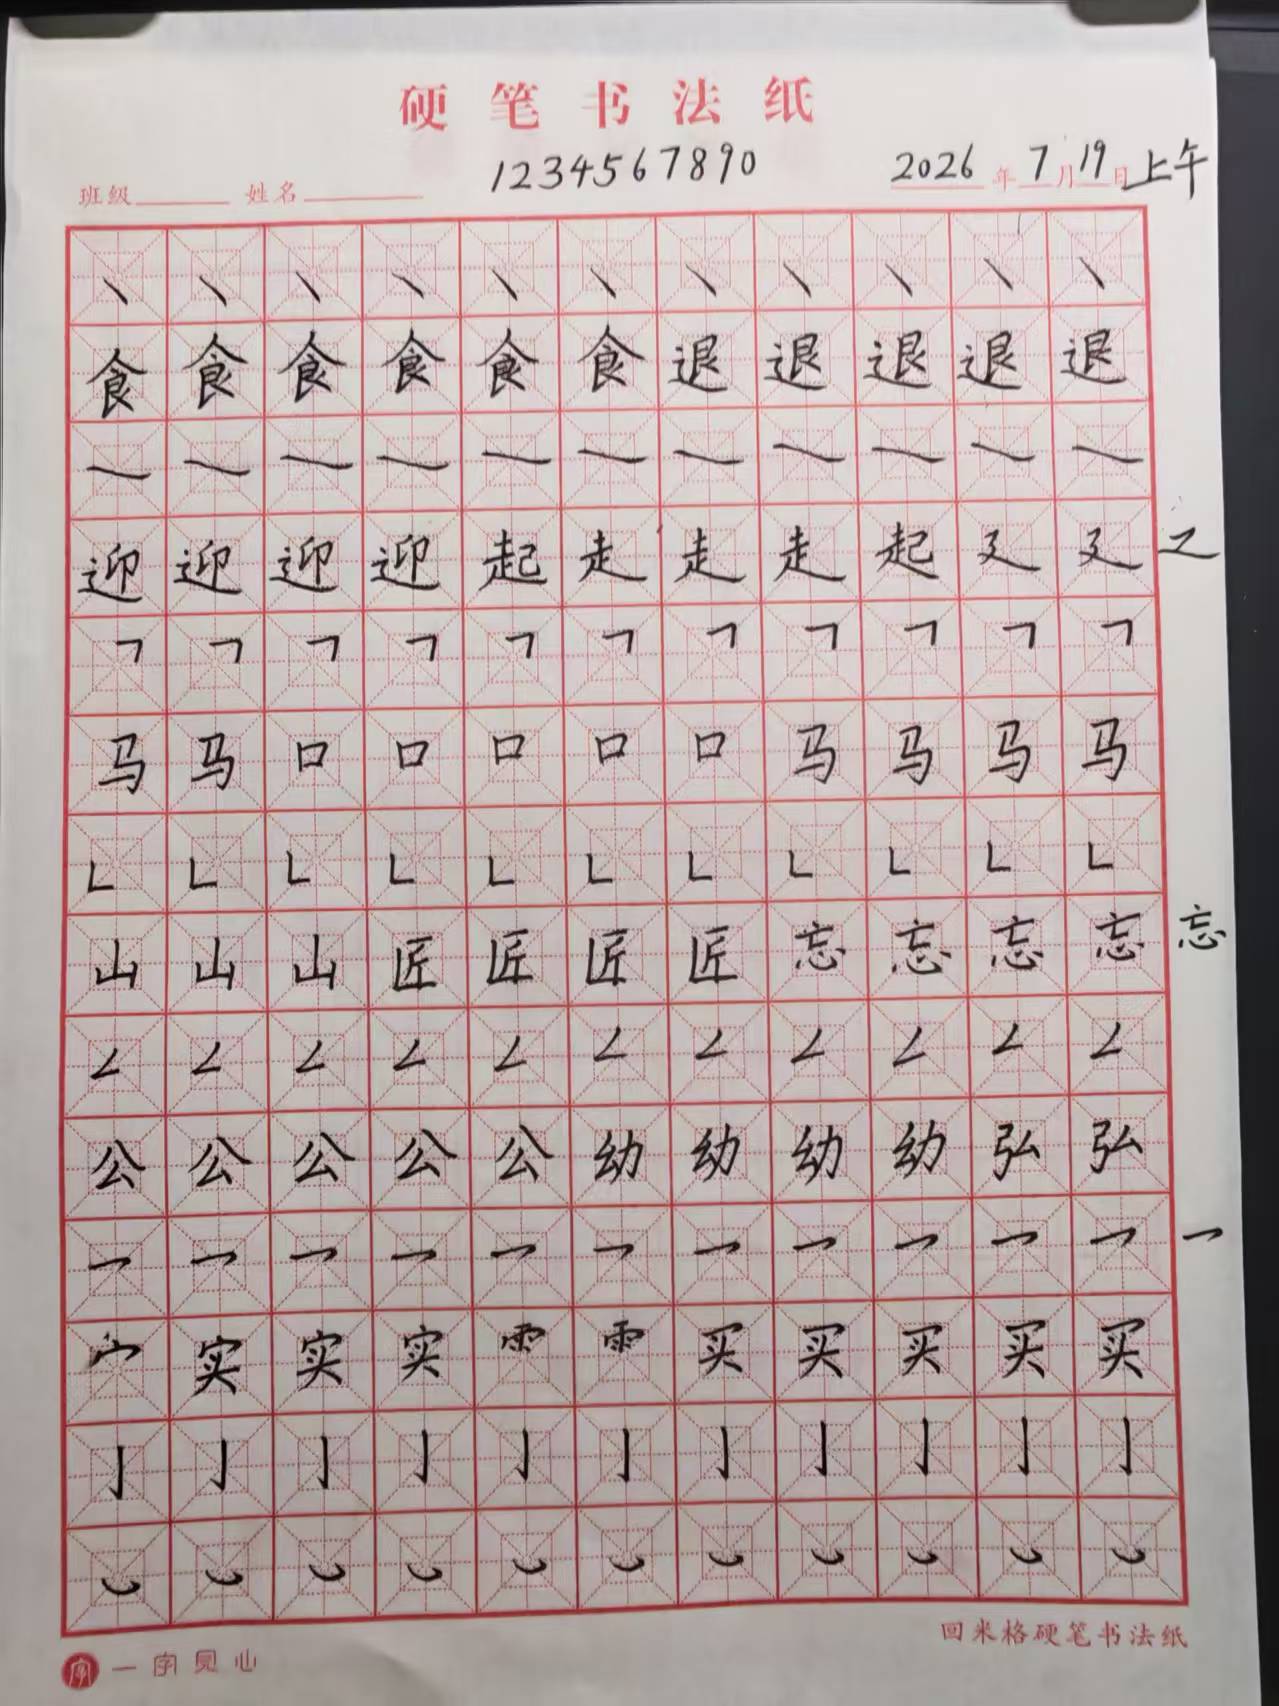 硬笔书法纸
1234567890
班级 姓名 2026年7月19日上午
丶丶丶丶丶丶丶丶丶丶丶
食食食食食食退退退退退
㇏㇏㇏㇏㇏㇏㇏㇏㇏㇏㇏
迎迎迎迎起走走走起廴廴辶
𠃍𠃍𠃍𠃍𠃍𠃍𠃍𠃍𠃍𠃍𠃍
马马口口口口口马马马马
𠃊𠃊𠃊𠃊𠃊𠃊𠃊𠃊𠃊𠃊𠃊
山山山匠匠匠匠忘忘忘忘忘
𠃋𠃋𠃋𠃋𠃋𠃋𠃋𠃋𠃋𠃋𠃋
公公公公公幼幼幼幼弘弘
乛乛乛乛乛乛乛乛乛乛乛乛
宀实实实⻗⻗买买买买买
亅亅亅亅亅亅亅亅亅亅亅
㇃㇃㇃㇃㇃㇃㇃㇃㇃㇃㇃
回米格硬笔书法纸
字 一字见心